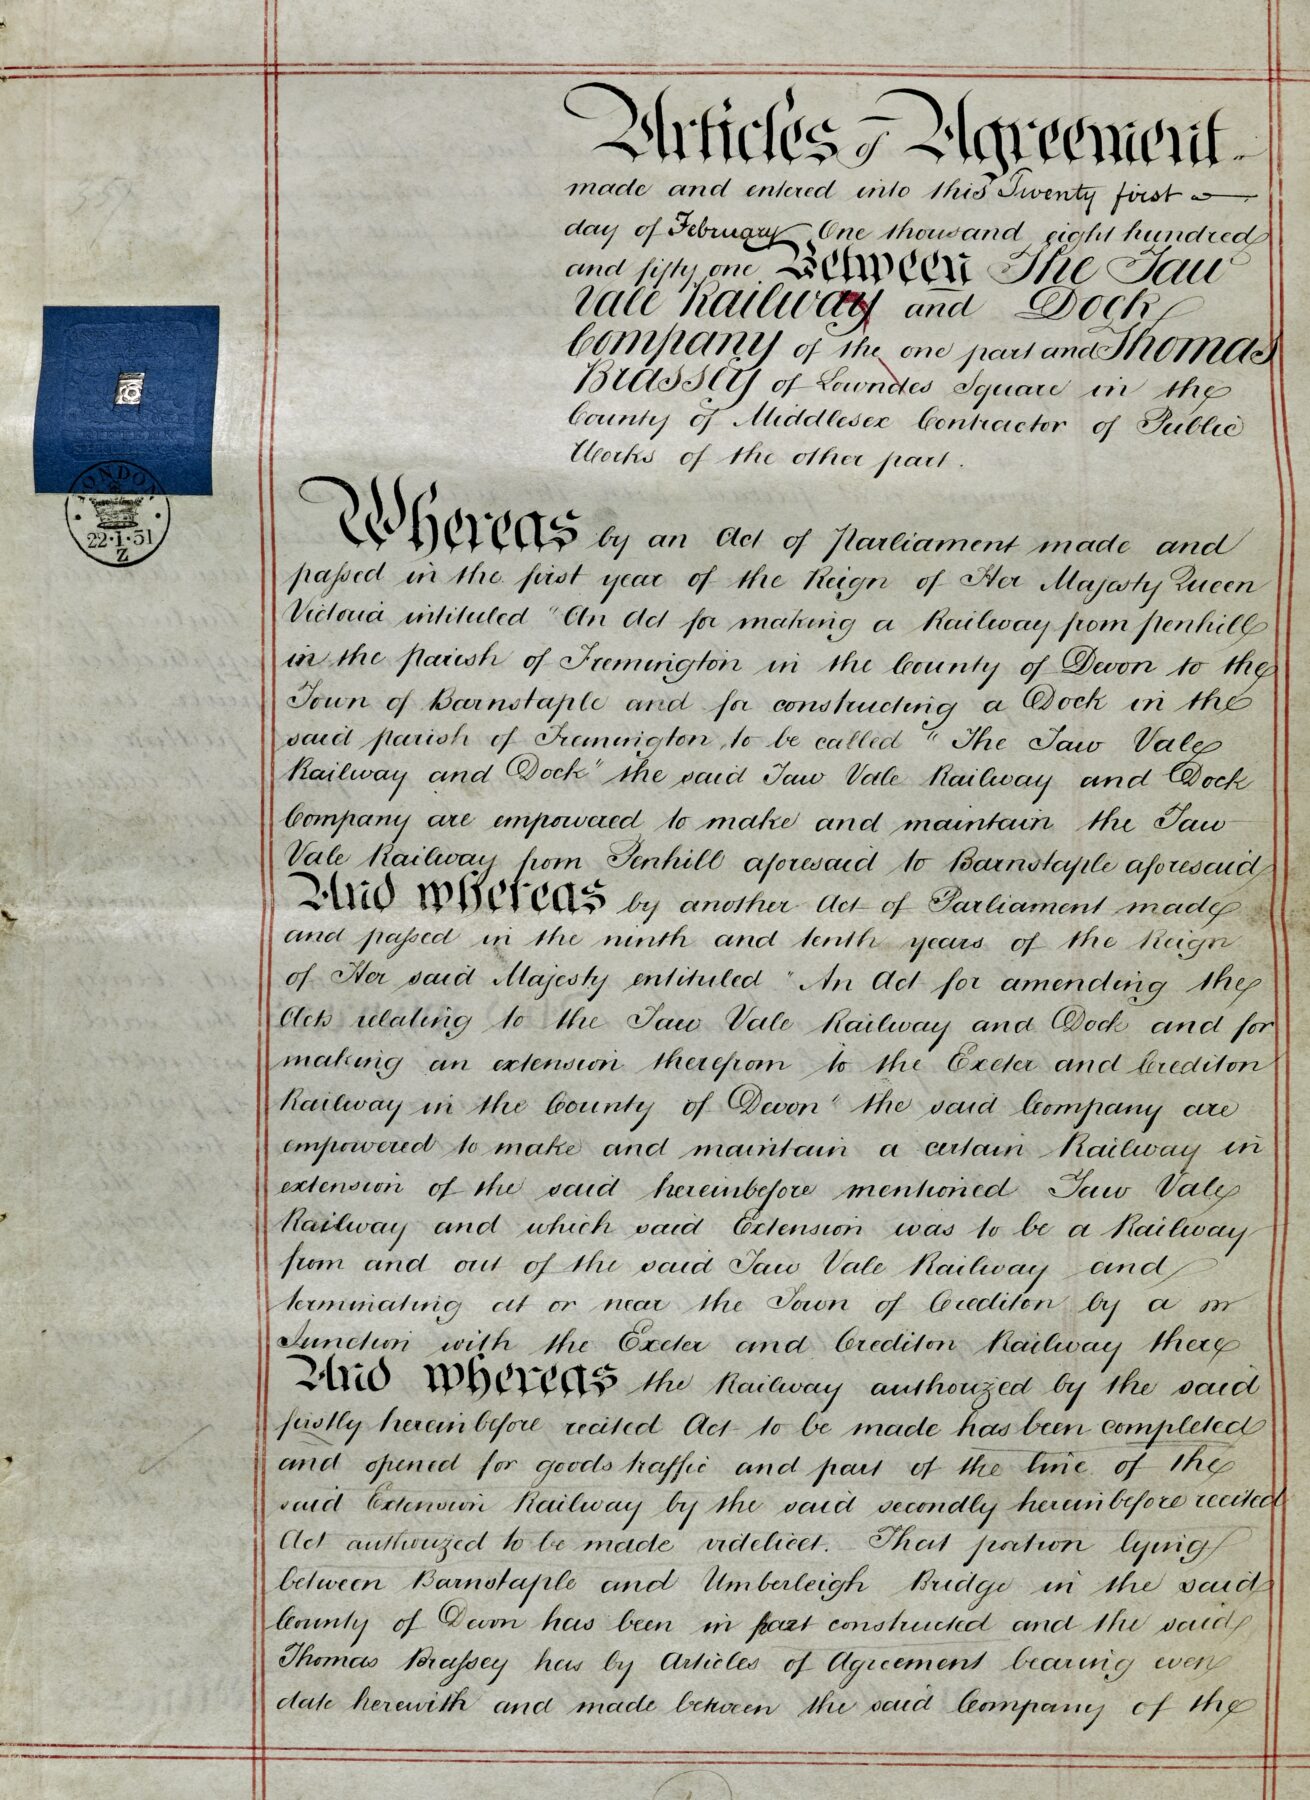 Articles of Agreement
made and entered into this Twenty first
day of February One thousand eight hundred
and fifty one Between The Taw
Vale Railway and Dock
Company of the one part and Thomas
Brassey of Lowndes Square in the
County of Middlesex Contractor of Public
Works of the other part.
LONDON
22·1·51
Z
Whereas by an Act of Parliament made and
passed in the first year of the Reign of Her Majesty Queen
Victoria intituled "An Act for making a Railway from Penhill
in the parish of Fremington in the County of Devon to the
Town of Barnstaple and for constructing a Dock in the
said parish of Fremington, to be called "The Taw Vale
Railway and Dock" the said Taw Vale Railway and Dock
Company are empowered to make and maintain the Taw
Vale Railway from Penhill aforesaid to Barnstaple aforesaid
And whereas by another Act of Parliament made
and passed in the ninth and tenth years of the Reign
of Her said Majesty entituled "An Act for amending the
Acts relating to the Taw Vale Railway and Dock and for
making an extension therefrom to the Exeter and Crediton
Railway in the County of Devon" the said Company are
empowered to make and maintain a certain Railway in
extension of the said hereinbefore mentioned Taw Vale
Railway and which said Extension was to be a Railway
from and out of the said Taw Vale Railway and
terminating at or near the Town of Crediton by a
Junction with the Exeter and Crediton Railway there
And whereas the Railway authorized by the said
firstly hereinbefore recited Act to be made has been completed
and opened for goods traffic and part of the line of the
said Extension Railway by the said secondly hereinbefore recited
Act authorized to be made videlicet. That portion lying
between Barnstaple and Umberleigh Bridge in the said
County of Devon has been in part constructed and the said
Thomas Brassey has by Articles of Agreement bearing even
date herewith and made between the said Company of the